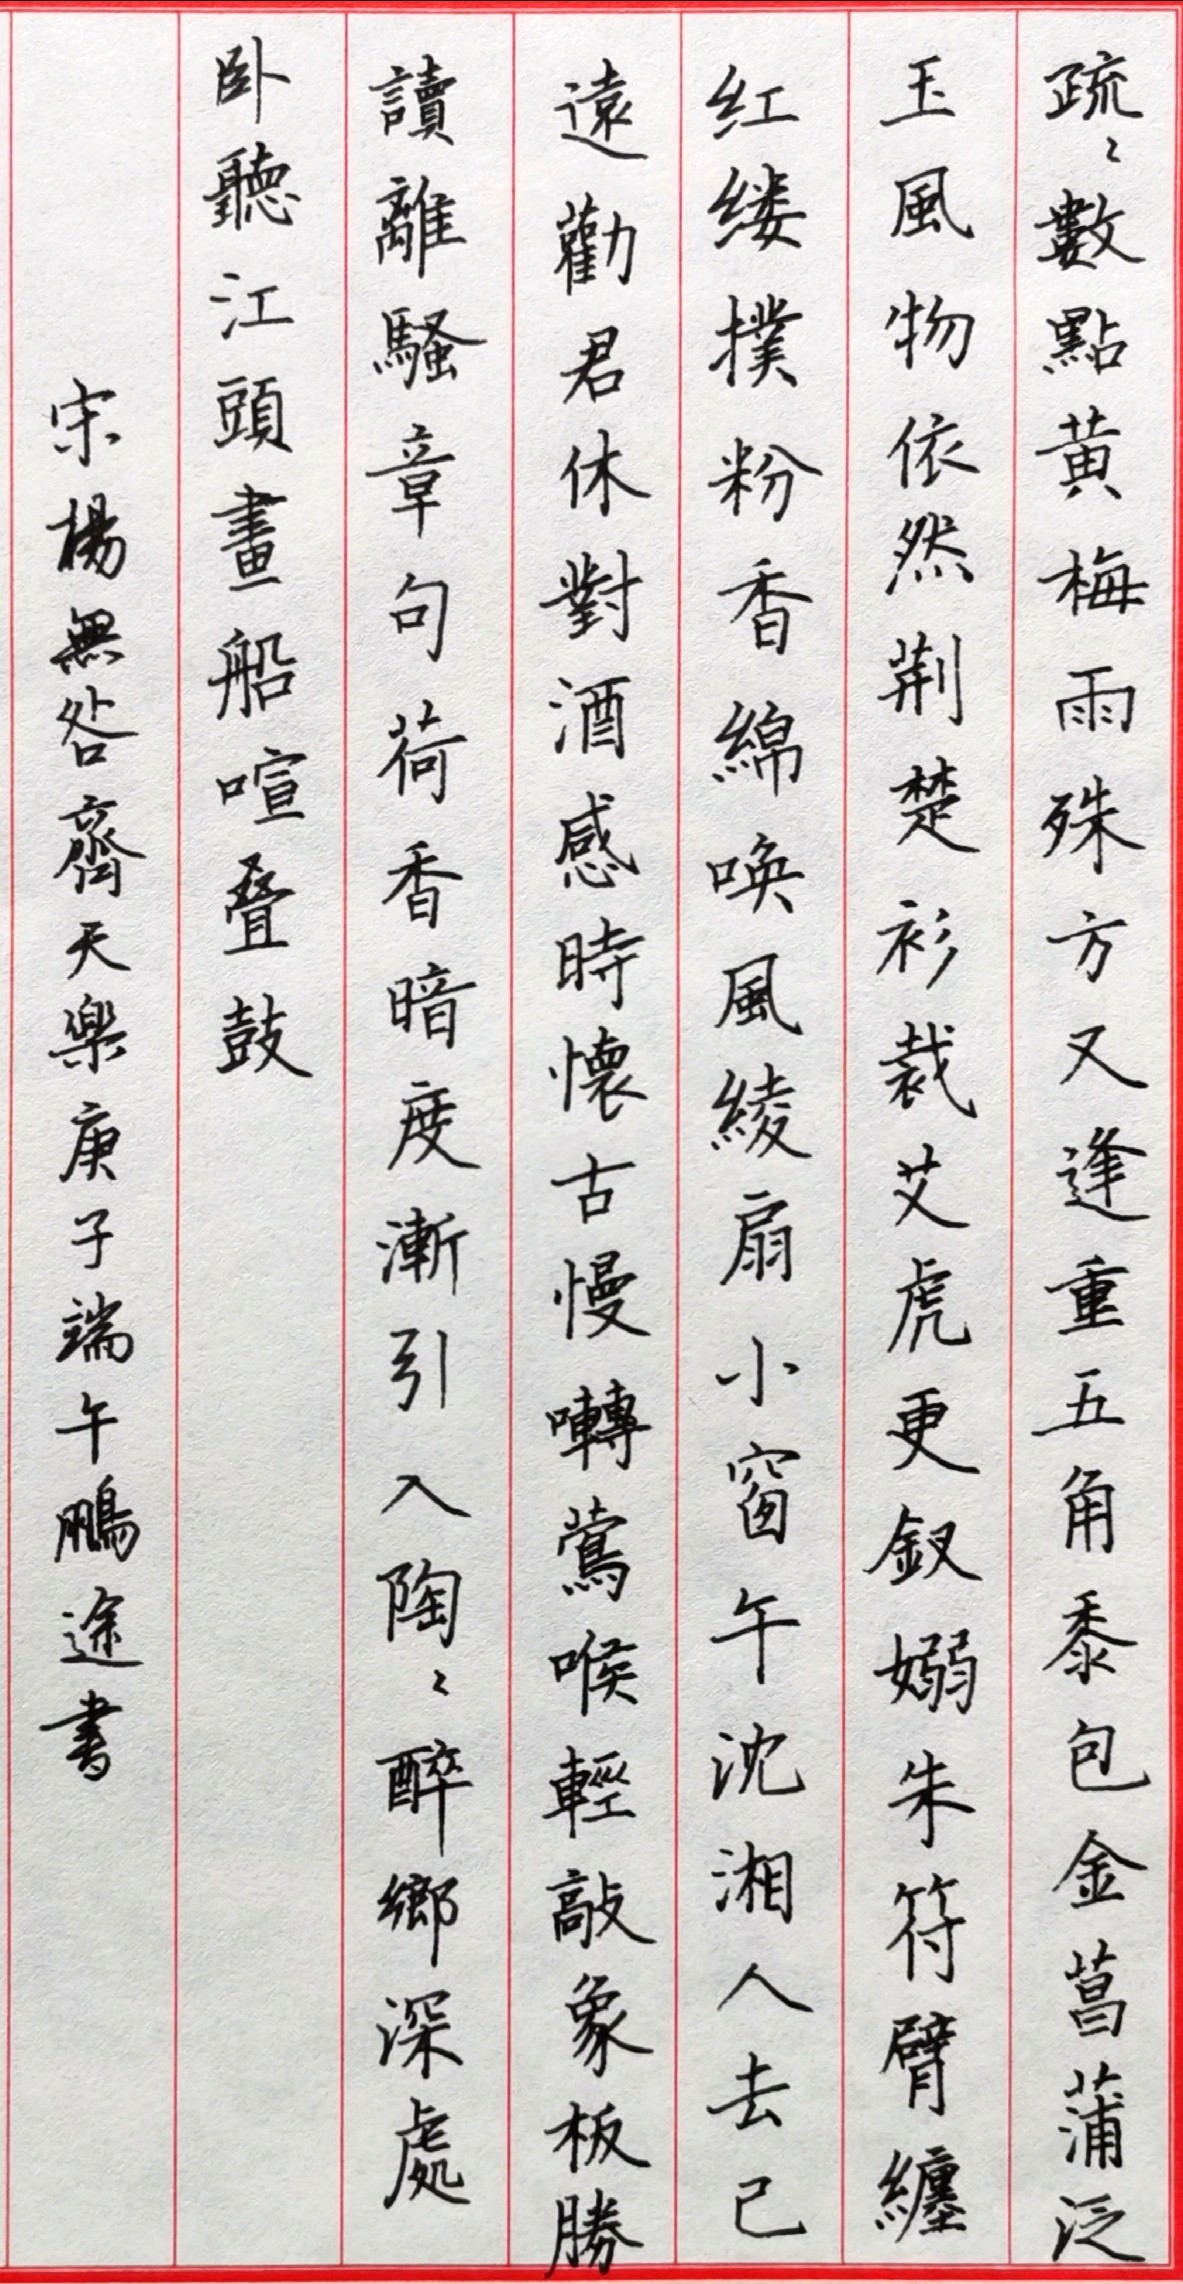 疏〻數點黄梅雨殊方又逢重五角黍包金菖蒲泛
玉風物依然荆楚衫裁艾虎更釵嫋朱符臂纏
红缕撲粉香綿唤風綾扇小窗午沈湘人去已
遠勸君休對酒感時懷古慢囀鶯喉輕敲象板勝
讀離騷章句荷香暗度漸引入陶〻醉鄉深處
卧聽江頭畫船喧叠鼓
宋楊無咎齊天樂庚子端午鵬途書